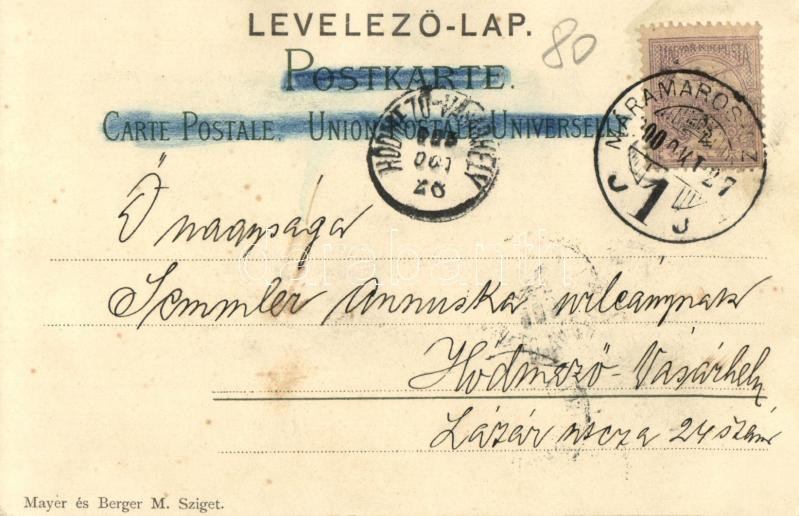 LEVELEZŐ-LAP.
80
POSTKARTE.
CARTE POSTALE. UNION POSTALE UNIVERSELLE.
MAGYAR KIR. POSTA
MÁRAMAROS
900 OKT 27
J 1 J
HÓDMEZŐ-VÁSÁRHELY
900
OKT
28
Ő nagysága
Semmler Annuska urleánynak
Hódmező-Vásárhely
Lázár utcza 24 szám
darabanth
Mayer és Berger M. Sziget.